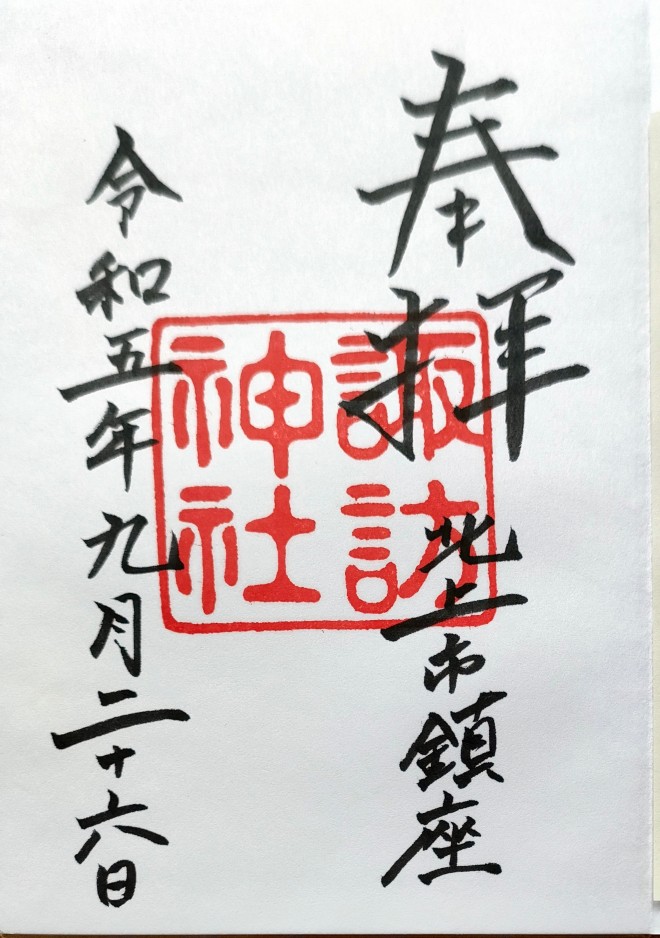 奉拝
北上市鎮座
諏訪
神社
令和五年九月二十六日